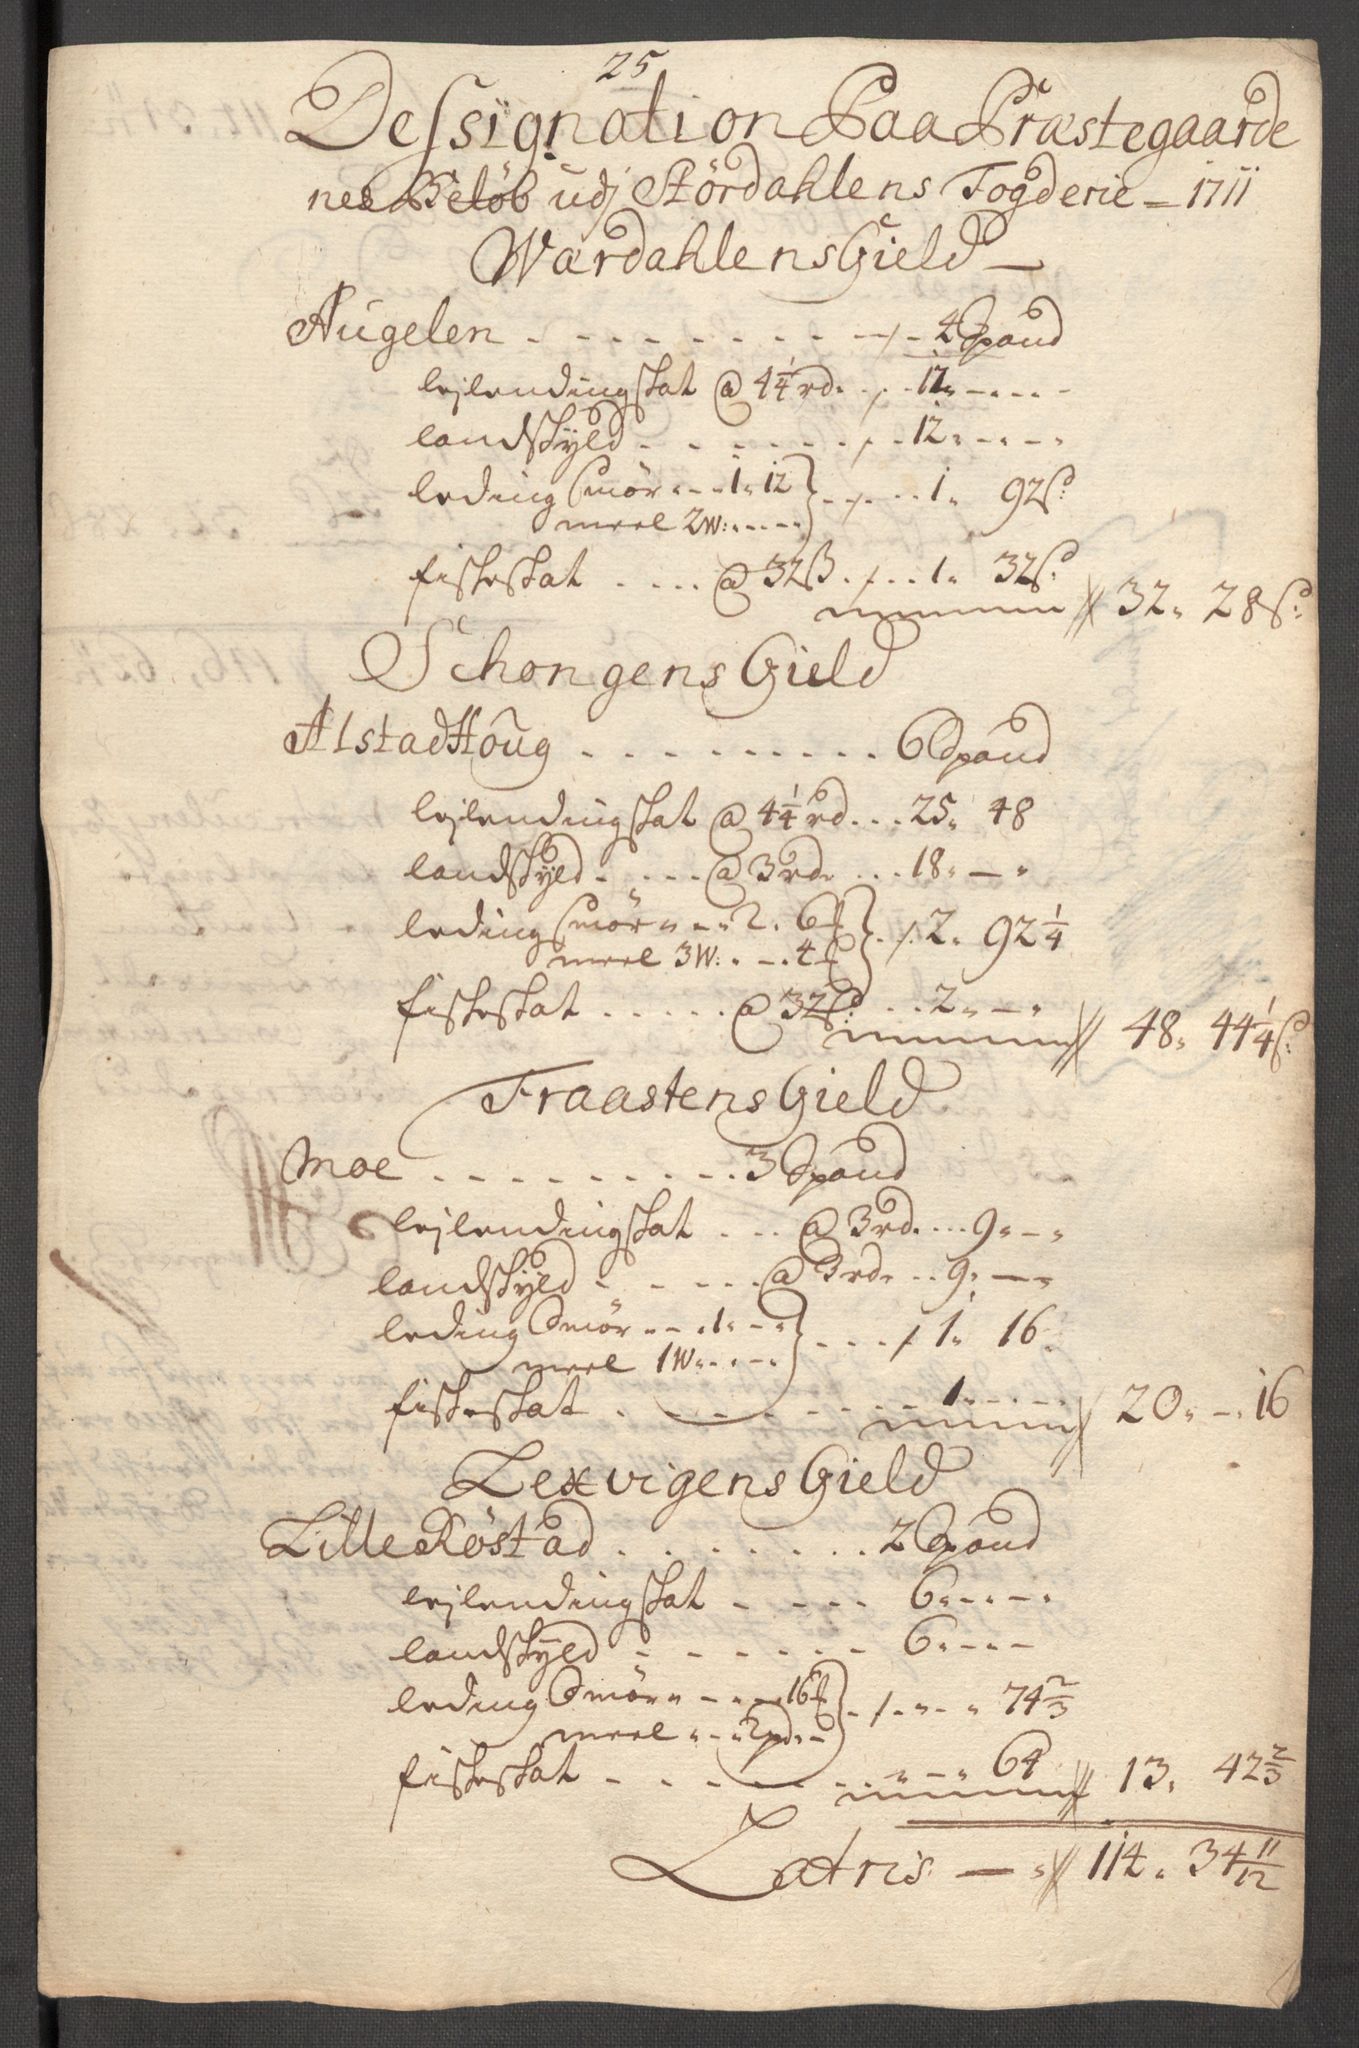 25
Dessignation Paa Præstegaarde
nes Beløb udj Størdahlens Fogderie - 1711
Wærdahlens Gield -
Augelen . . . . . . . . . 4 Spand
lejlendingskat @ 4¼ rd. . . 17. - . . .
landskyld . . . . . . . 12. - . -
leding Smör . . . 1. 12
meel 2 W: . . . . . . 1. 92 s:
fiskeskat . . . . @ 32 ß . . . 1. 32 s: 32. 28 s:
Schongens Gield
Alstad Houg . . . . . . . . . 6 Spand
lejlendingskat @ 4¼ rd . . . 25. 48
landskyld . . . . @ 3 rd. . . . 18. - .
leding Smör . . . 2. 6
meel 3 W: . - . 4 . . 2. 92 ¼
fiskeskat . . . . . @ 32 s: . . 2. - . 48. 44 ¼ s:
Fraastens Gield
Moe . . . . . . . . . 3 Spand
lejlendingskat . . . @ 3 rd. . . . 9. - .
landskyld . . . . . @ 3 rd. . . 9. - .
leding Smör . . . 1. - .
meel 1 W. . . . . . . . 1. 16.
fiskeskat . . . . . . . . 1. . . . . 20. - . 16
Lexvigens Gield
Lille Röstad . . . . . . . 2 Spand
lejlendingskat . . . . 6. . . . .
landskyld . . . . . . . 6. . . -
leding Smör . . . . 16
meel . . . 2 pd. . . . . . . 74 ⅔
fiskeskat . . . . . . . . . . 64 13. 42 ⅔
Latris - . 114. 34 11/12